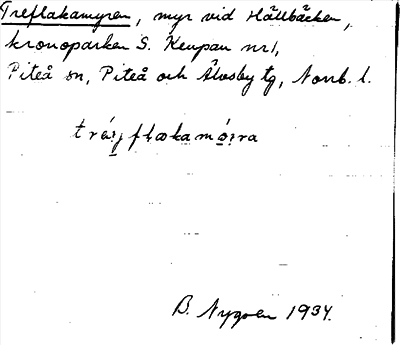 Treflakamyren, myr vid Hällbäcken,
kronoparken S. Keupan nr 1,
Piteå sn, Piteå och Älvsby tg, Norrb. l.
B. Nygren 1934.